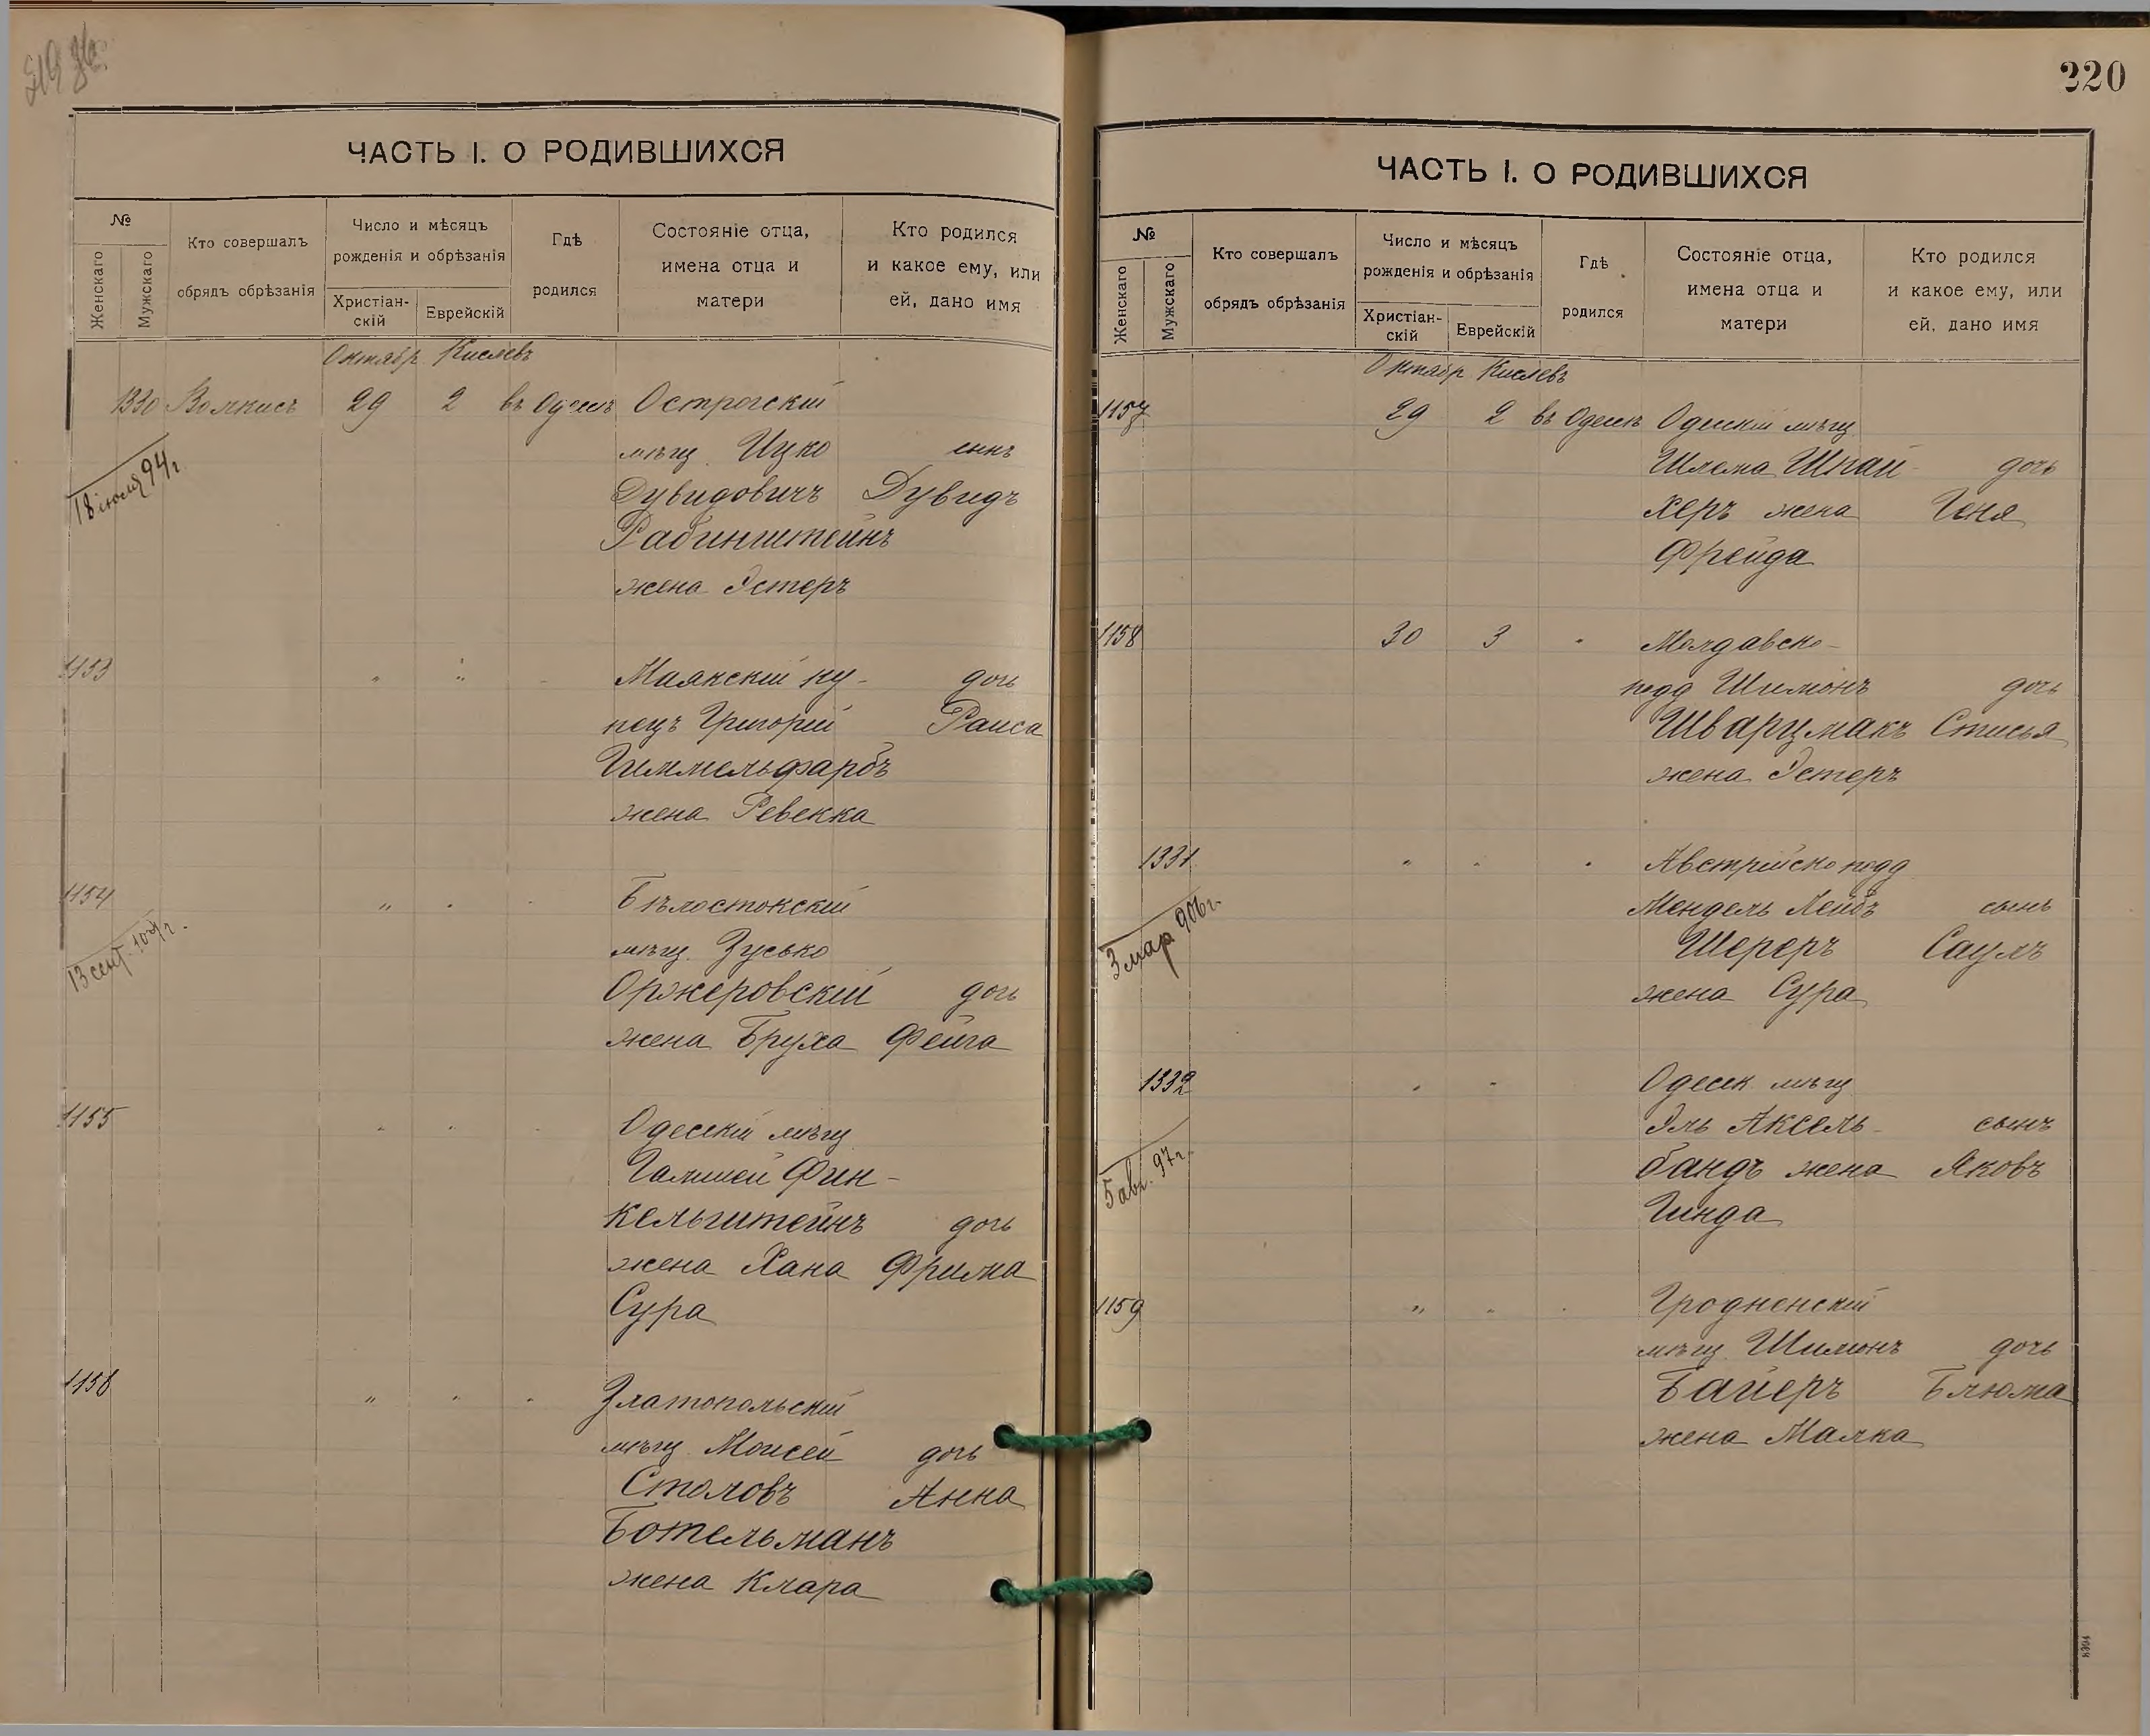 ЧАСТЬ I. О РОДИВШИХСЯ
№
Женскаго
Мужскаго
Кто совершалъ
обрядъ обрѣзанія
Число и мѣсяцъ
рожденія и обрѣзанія
Христіан-
скій
Еврейскій
Гдѣ
родился
Состояніе отца,
имена отца и
матери
Кто родился
и какое ему, или
ей, дано имя
Октябр Кислевъ
1330 29 2 въ Одессѣ Острогскій
мѣщ. Ицко сынъ
Дувидовичъ Дувидъ
Рабинштейнъ
жена Эстеръ
18 іюля 94 г.
1153 " " Маякскій ку-
пецъ Григорій дочь
Гиммельфарбъ Раиса
жена Ревекка
1154 " " Бѣлостокскій
мѣщ. Зусько
Оржеровскій дочь
жена Бруха Фейга
13 сент.
1155 " " Одесскій мѣщ
Фин-
кельштейнъ дочь
жена Хана Фрима
Сура
1156 " " Златопольскій
мѣщ. Моисей дочь
Столовъ Анна
Ботельманъ
жена Клара
220
ЧАСТЬ I. О РОДИВШИХСЯ
№
Женскаго
Мужскаго
Кто совершалъ
обрядъ обрѣзанія
Число и мѣсяцъ
рожденія и обрѣзанія
Христіан-
скій
Еврейскій
Гдѣ
родился
Состояніе отца,
имена отца и
матери
Кто родился
и какое ему, или
ей, дано имя
Октябр Кислевъ
1157 29 2 въ Одессѣ Одесскій мѣщ
Шлема Шпай- дочь
херъ жена Геня
Фрейда
1158 30 3 " Молдавско-
подд Шимонъ дочь
Шварцмакъ Стисья
жена Эстеръ
1331 " " " Австрійско подд
Мендель Лейбъ сынъ
Шереръ Саулъ
жена Сура
3 мар 906 г.
1332 " " Одесск мѣщ
Эль Аксель- сынъ
бандъ жена Яковъ
Гинда
5 авг. 97 г.
1159 " " Гродненскій
мѣщ Шимонъ дочь
Байеръ Блюма
жена Малка